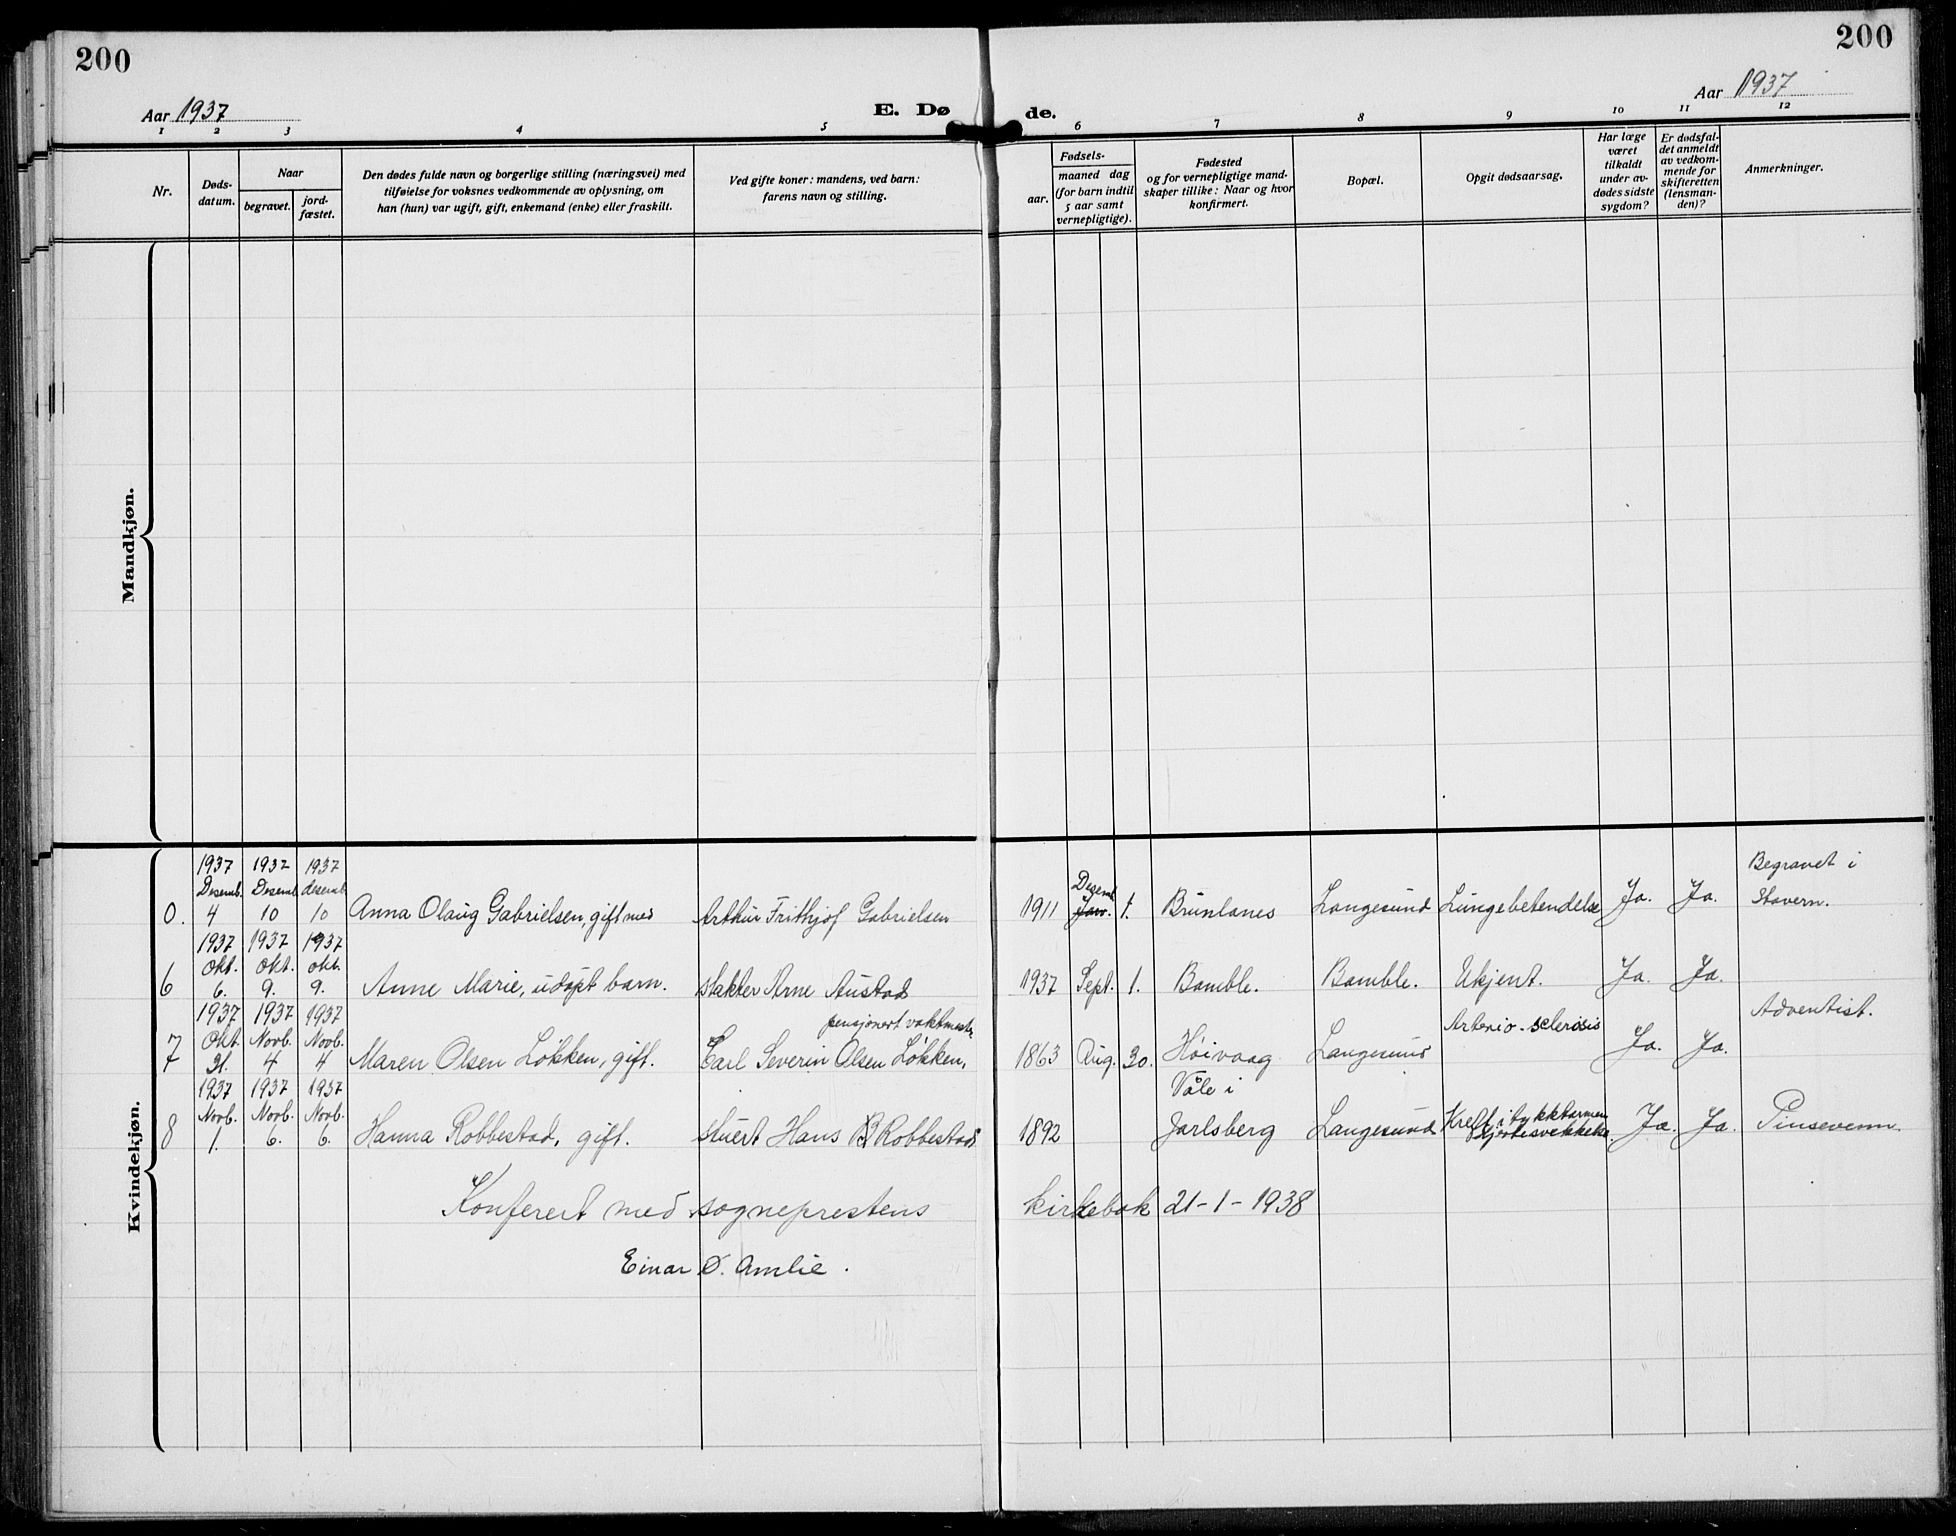 200
200
Aar 1937
E. Dø
de.
Aar 1937
1 2 3 4 5 6 7 8 9 10 11 12
Nr.
Døds-
datum.
Naar
begravet.
jord-
fæstet.
Den dødes fulde navn og borgerlige stilling (næringsvei) med
tilføielse for voksnes vedkommende av oplysning, om
han (hun) var ugift, gift, enkemand (enke) eller fraskilt.
Ved gifte koner: mandens, ved barn:
farens navn og stilling.
Fødsels-
aar.
maaned dag
(for barn indtil
5 aar samt
vernepligtige).
Fødested
og for vernepligtige mand-
skaper tillike: Naar og hvor
konfirmert.
Bopæl.
Opgit dødsaarsag.
Har læge
været
tilkaldt
under av-
dødes sidste
sygdom?
Er dødsfal-
det anmeldt
av vedkom-
mende for
skifteretten
(lensman-
den)?
Anmerkninger.
Mandkjøn.
Kvindekjøn.
1937 1937 1937
Desemb. Desemb. desemb. Desemb. Begravet i
0. 4 10 10 Anna Olaug Gabrielsen, gift med Arthur Frithjof Gabrielsen 1911 Jan. 1. Brunlanes Langesund Lungebetendelse Ja. Ja. Stavern.
1937 1937 1937
Okt. Okt. okt.
6 6. 9. 9. Anne Marie, udøpt barn. slakter Arne Austad 1937 Sept. 1. Bamble. Bamble. Ukjent. Ja. Ja.
1937 1937 1937 pensjonert vaktmestr. Arterio-sclerosis Adventist.
Okt Novb. Novb.
7 31. 4 4 Maren Olsen Løkken, gift. Carl Severin Olsen Løkken, 1863 Aug. 30. Høivaag Langesund Ja. Ja.
1937 1937 1937 Våle i
Novb. Novb. Novb. Kreft i tykktarmen
8 1. 6. 6. Hanna Robbestad, gift. stuert Hans B Robbestad 1892 Jarlsberg Langesund Hjertesvekkelse. Ja. Ja. Pinsevenn.
Konferert med sogneprestens kirkebok 21-1-1938
Einar O. Amlie.